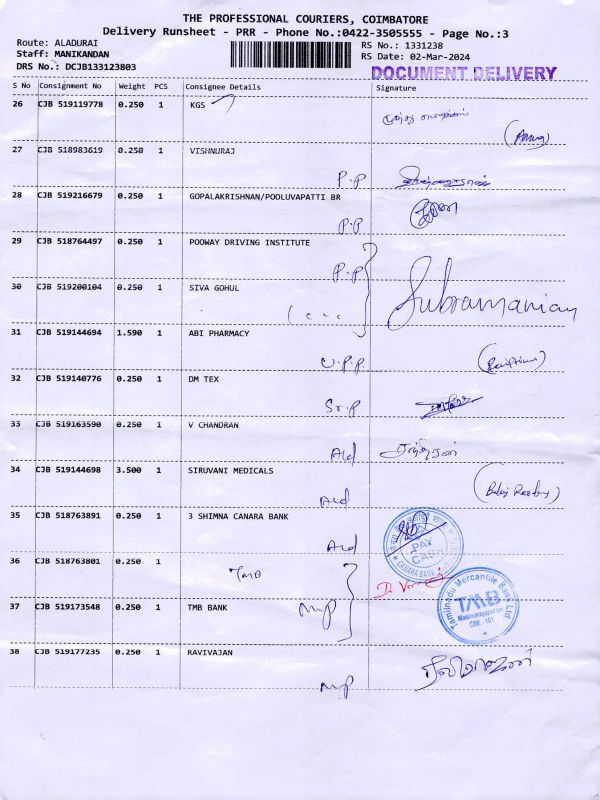 THE PROFESSIONAL COURIERS, COIMBATORE
Delivery Runsheet - PRR - Phone No.:0422-3505555 - Page No.:3
Route: ALADURAI
Staff: MANIKANDAN
DRS No.: DCJB133123803
RS No.: 1331238
RS Date: 02-Mar-2024
DOCUMENT DELIVERY
S No Consignment No Weight PCS Consignee Details Signature
26 CJB 519119778 0.250 1 KGS
27 CJB 518983619 0.250 1 VISHNURAJ
P.P
28 CJB 519216679 0.250 1 GOPALAKRISHNAN/POOLUVAPATTI BR
P.P
29 CJB 518764497 0.250 1 POOWAY DRIVING INSTITUTE
P.P
30 CJB 519200104 0.250 1 SIVA GOHUL
Subramanian
31 CJB 519144694 1.590 1 ABI PHARMACY
U.P.P
32 CJB 519140776 0.250 1 DM TEX
Sr.P
33 CJB 519163590 0.250 1 V CHANDRAN
Ald
34 CJB 519144698 3.500 1 SIRUVANI MEDICALS
Ald
35 CJB 518763891 0.250 1 3 SHIMNA CANARA BANK
Ald
PAY
CASH
CANARA BANK
36 CJB 518763801 0.250 1
TMB
37 CJB 519173548 0.250 1 TMB BANK
MP
Tamilnadu Mercantile Bank Ltd
TMB
38 CJB 519177235 0.250 1 RAVIVAJAN
MP